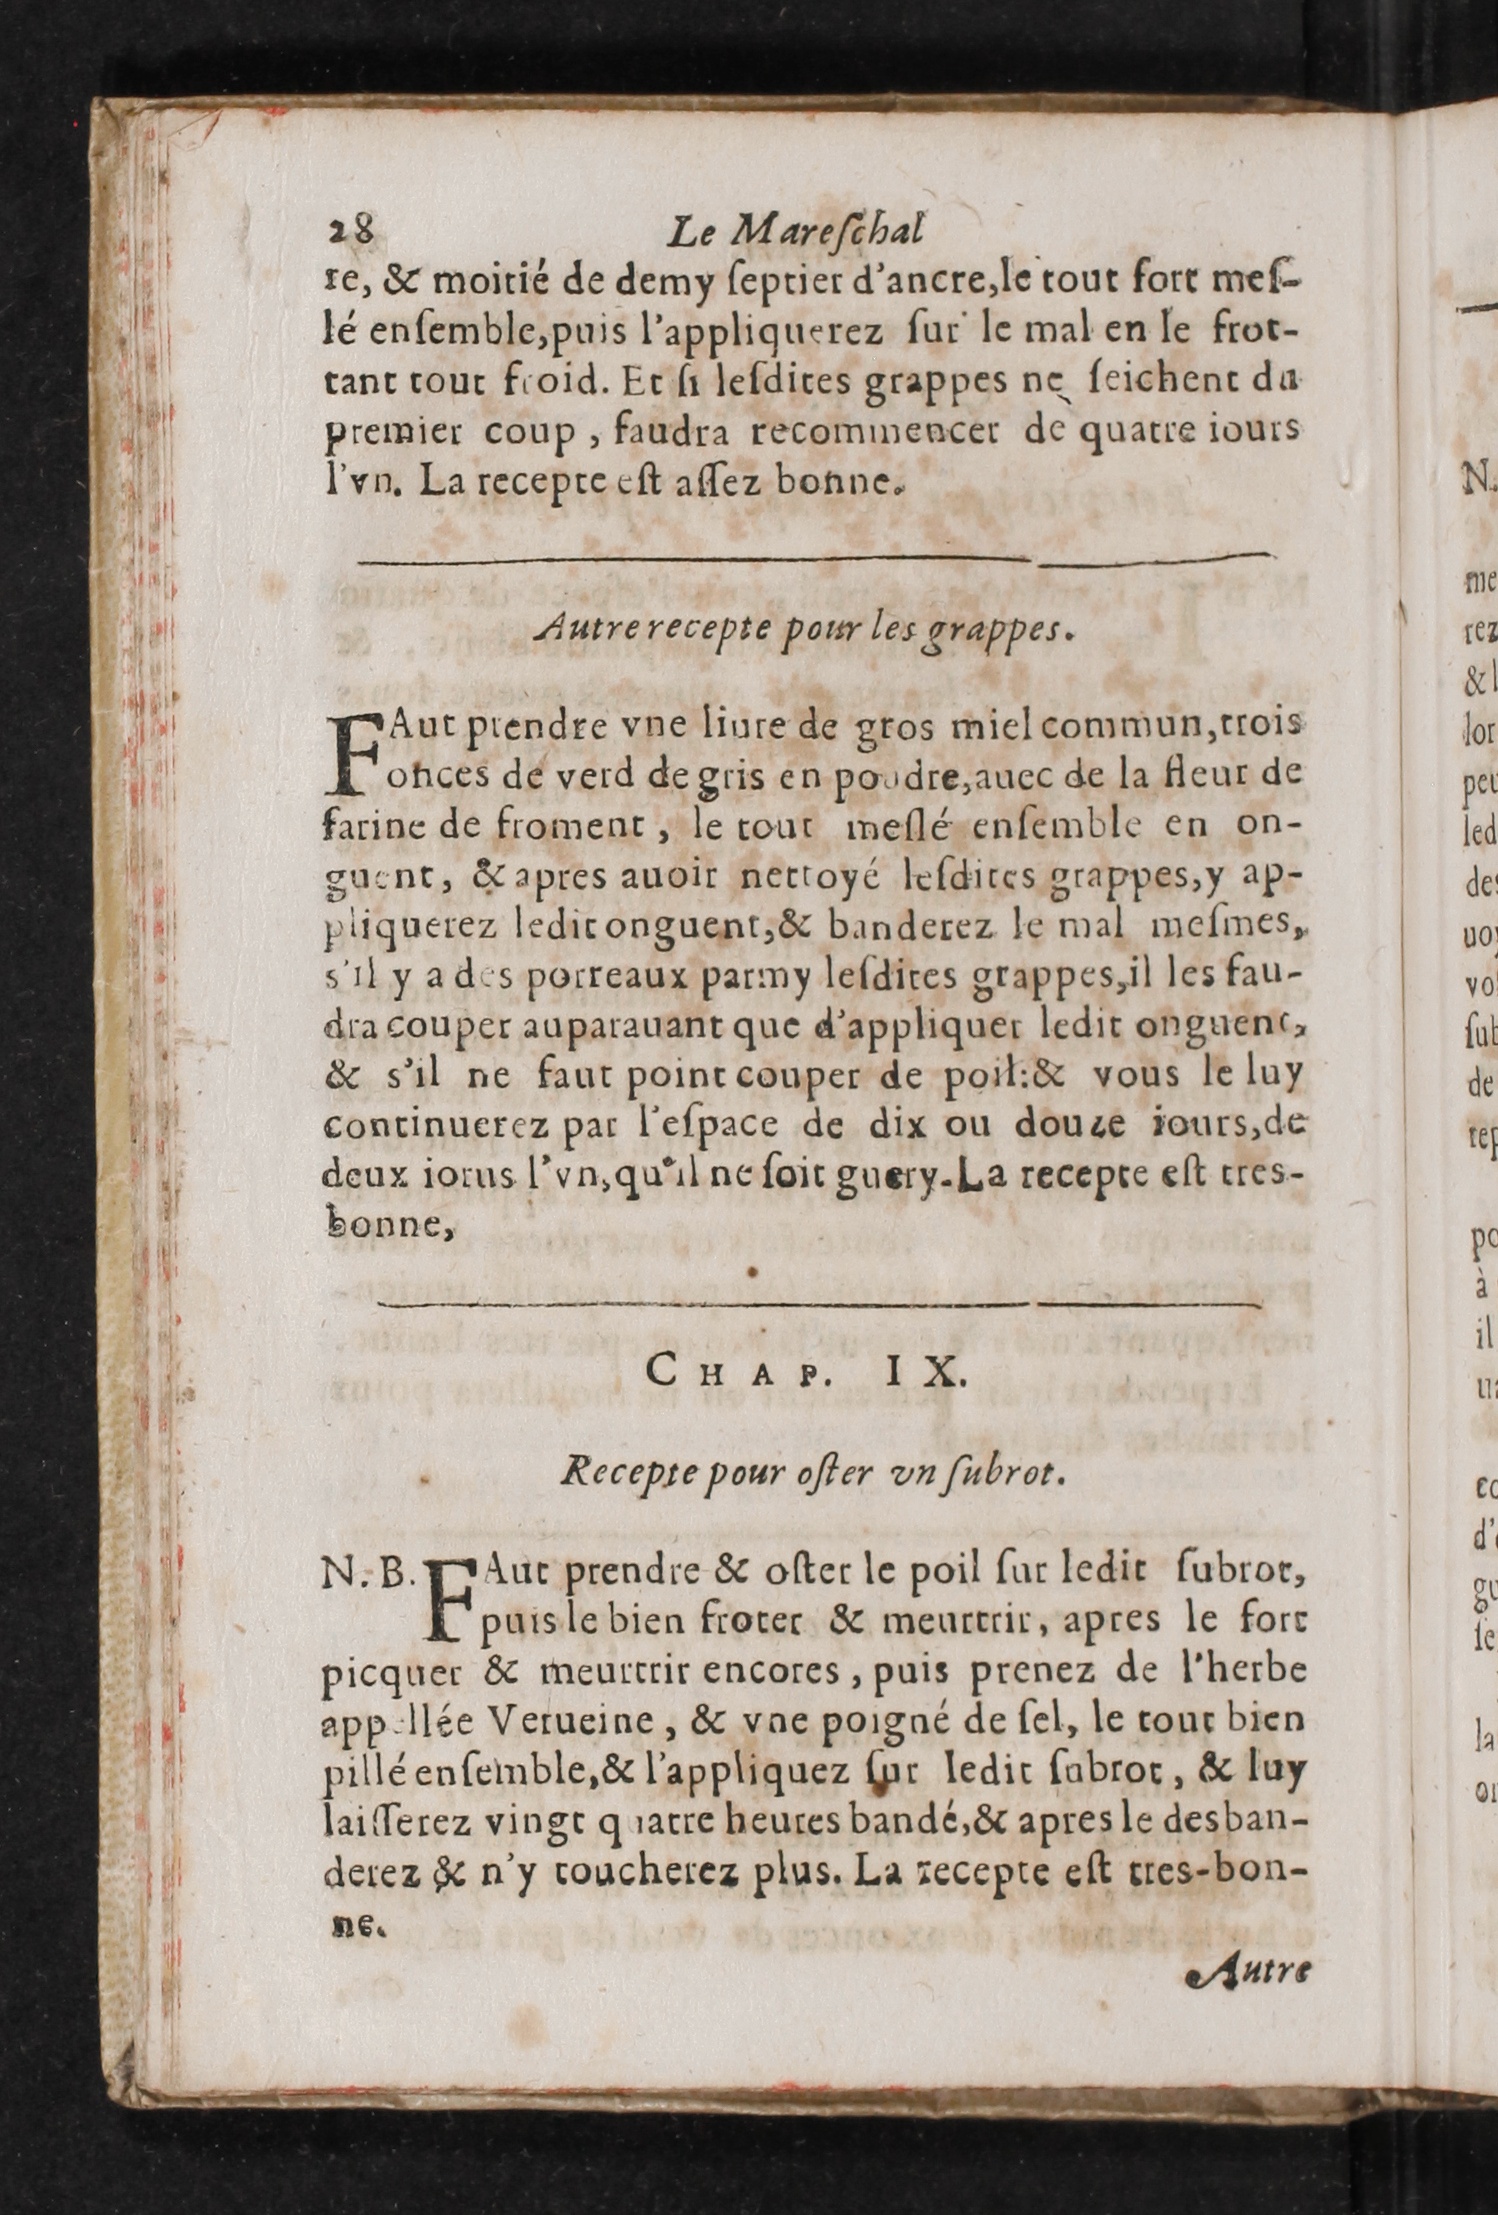 28 Le Mareſchal
re, & moitié de demy ſeptier d'ancre,le tout fort meſ-
lé enſemble,puis l'appliquerez ſur le mal en le frot-
tant tout froid. Et ſi leſdites grappes ne ſeichent du
premier coup , faudra recommencer de quatre iours
l'vn. La recepte eſt aſſez bonne.
Autre recepte pour les grappes.
FAut prendre vne liure de gros miel commun,trois
onces de verd de gris en poudre,auec de la fleur de
farine de froment , le tout meſlé enſemble en on-
guent, & apres auoir nettoyé leſdites grappes,y ap-
pliquerez ledit onguent,& banderez le mal meſmes,
s'il y a des porreaux parmy leſdites grappes,il les fau-
dra couper auparauant que d'appliquer ledit onguent,
& s'il ne faut point couper de poil:& vous le luy
continuerez par l'eſpace de dix ou douze iours,de
deux iorus l'vn,qu'il ne ſoit guery.La recepte eſt tres-
bonne,
CHAP. IX.
Recepte pour oſter vn ſubrot.
N. B. FAut prendre & oſter le poil ſur ledit ſubrot,
puis le bien froter & meurtrir, apres le fort
picquer & meurtrir encores , puis prenez de l'herbe
appellée Verueine , & vne poigné de ſel, le tout bien
pillé enſemble,& l'appliquez ſur ledit ſubrot , & luy
laiſſerez vingt quatre heures bandé,& apres le desban-
derez & n'y toucherez plus. La recepte eſt tres-bon-
ne.
Autre
N.
me
rez
& l
lor
peu
led
des
uoy
vo
ſub
de
rep
po
à
il
co
d'
gu
la